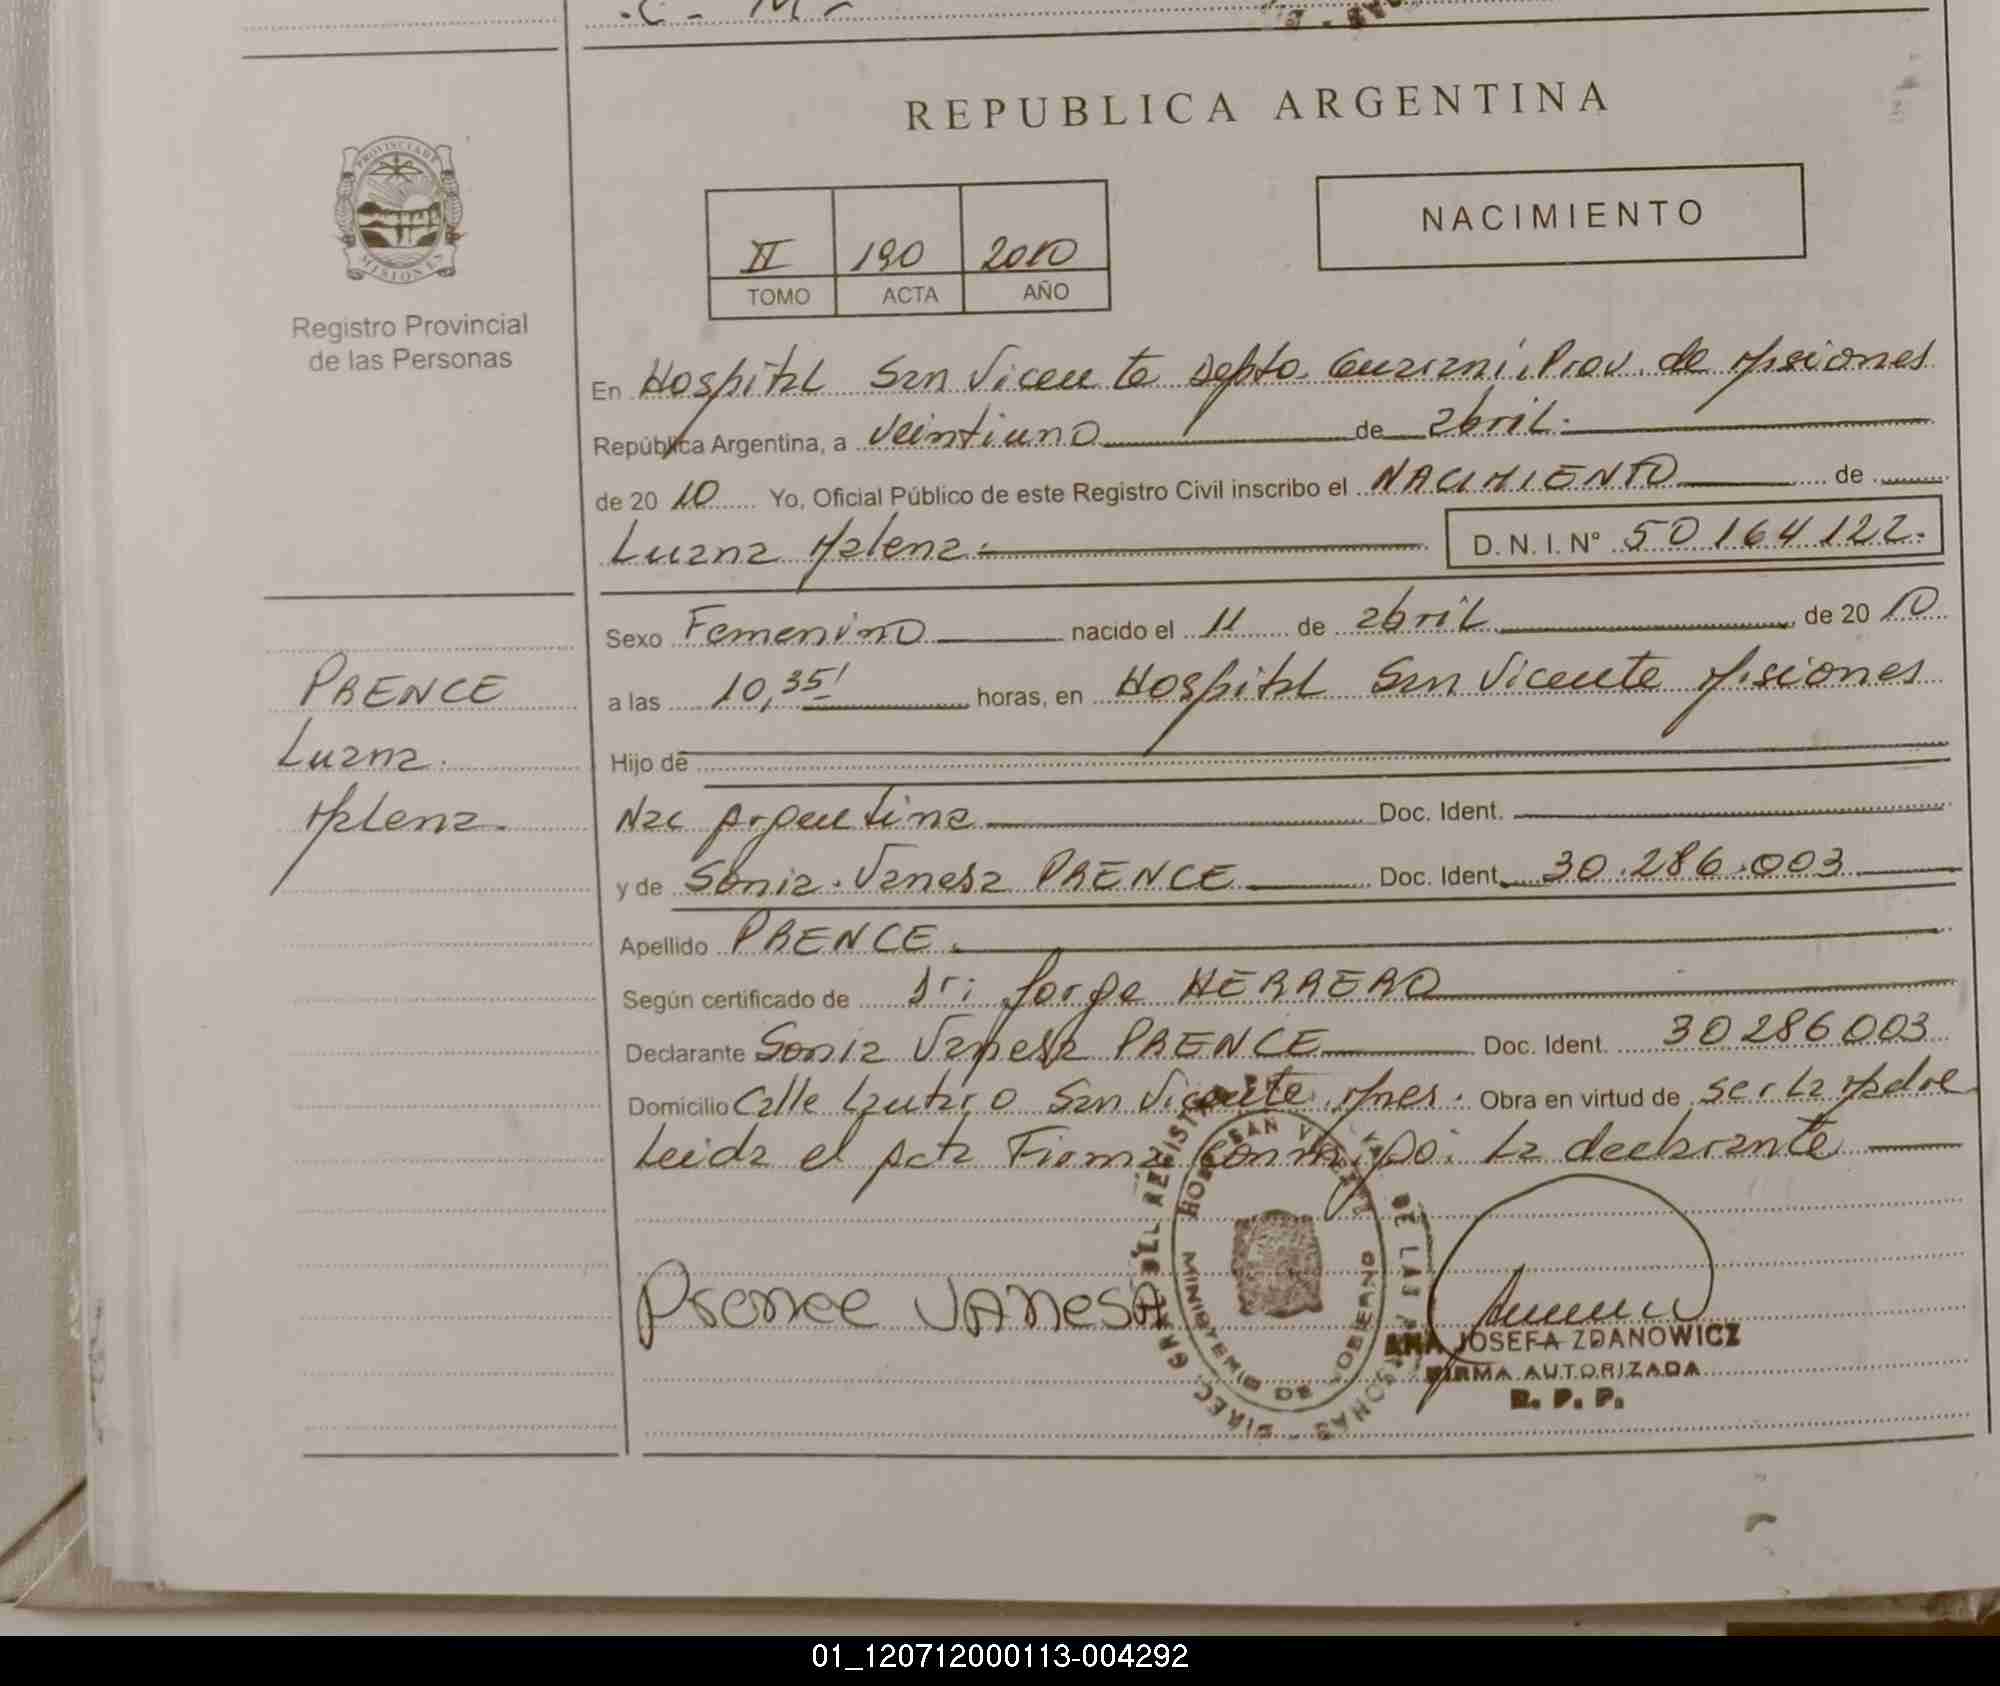 REPUBLICA ARGENTINA
PROVINCIA DE
MISIONES
Registro Provincial
de las Personas
II 190 2010
TOMO ACTA AÑO
NACIMIENTO
En Hospital San Vicente Depto. Guarani, Prov. de Misiones
República Argentina, a veintiuno de abril.
de 20 10 Yo, Oficial Público de este Registro Civil inscribo el NACIMIENTO de
Luana Malena. D. N. I. N° 50164122.
Sexo Femenino nacido el 11 de abril, de 20 10
a las 10,35' horas, en Hospital San Vicente Misiones
Hijo de
Nac Argentina Doc. Ident.
y de Sonia Vanesa PRENCE Doc. Ident. 30.286.003
Apellido PRENCE.
Según certificado de Dr: Jorge HERRERO
Declarante Sonia Vanesa PRENCE Doc. Ident. 30286003
Domicilio Calle Lautaro San Vicente, Mnes. Obra en virtud de ser la Madre
Leida el Acta Firma conmigo: La declarante
PRENCE
Luana
Malena.
Prence VANESA
DIREC. GRAL. DEL REGISTRO DE LAS PERSONAS
HOSP. SAN VICENTE
MINISTERIO DE GOBIERNO
ANA JOSEFA ZDANOWICZ
FIRMA AUTORIZADA
R. P. P.
01_120712000113-004292